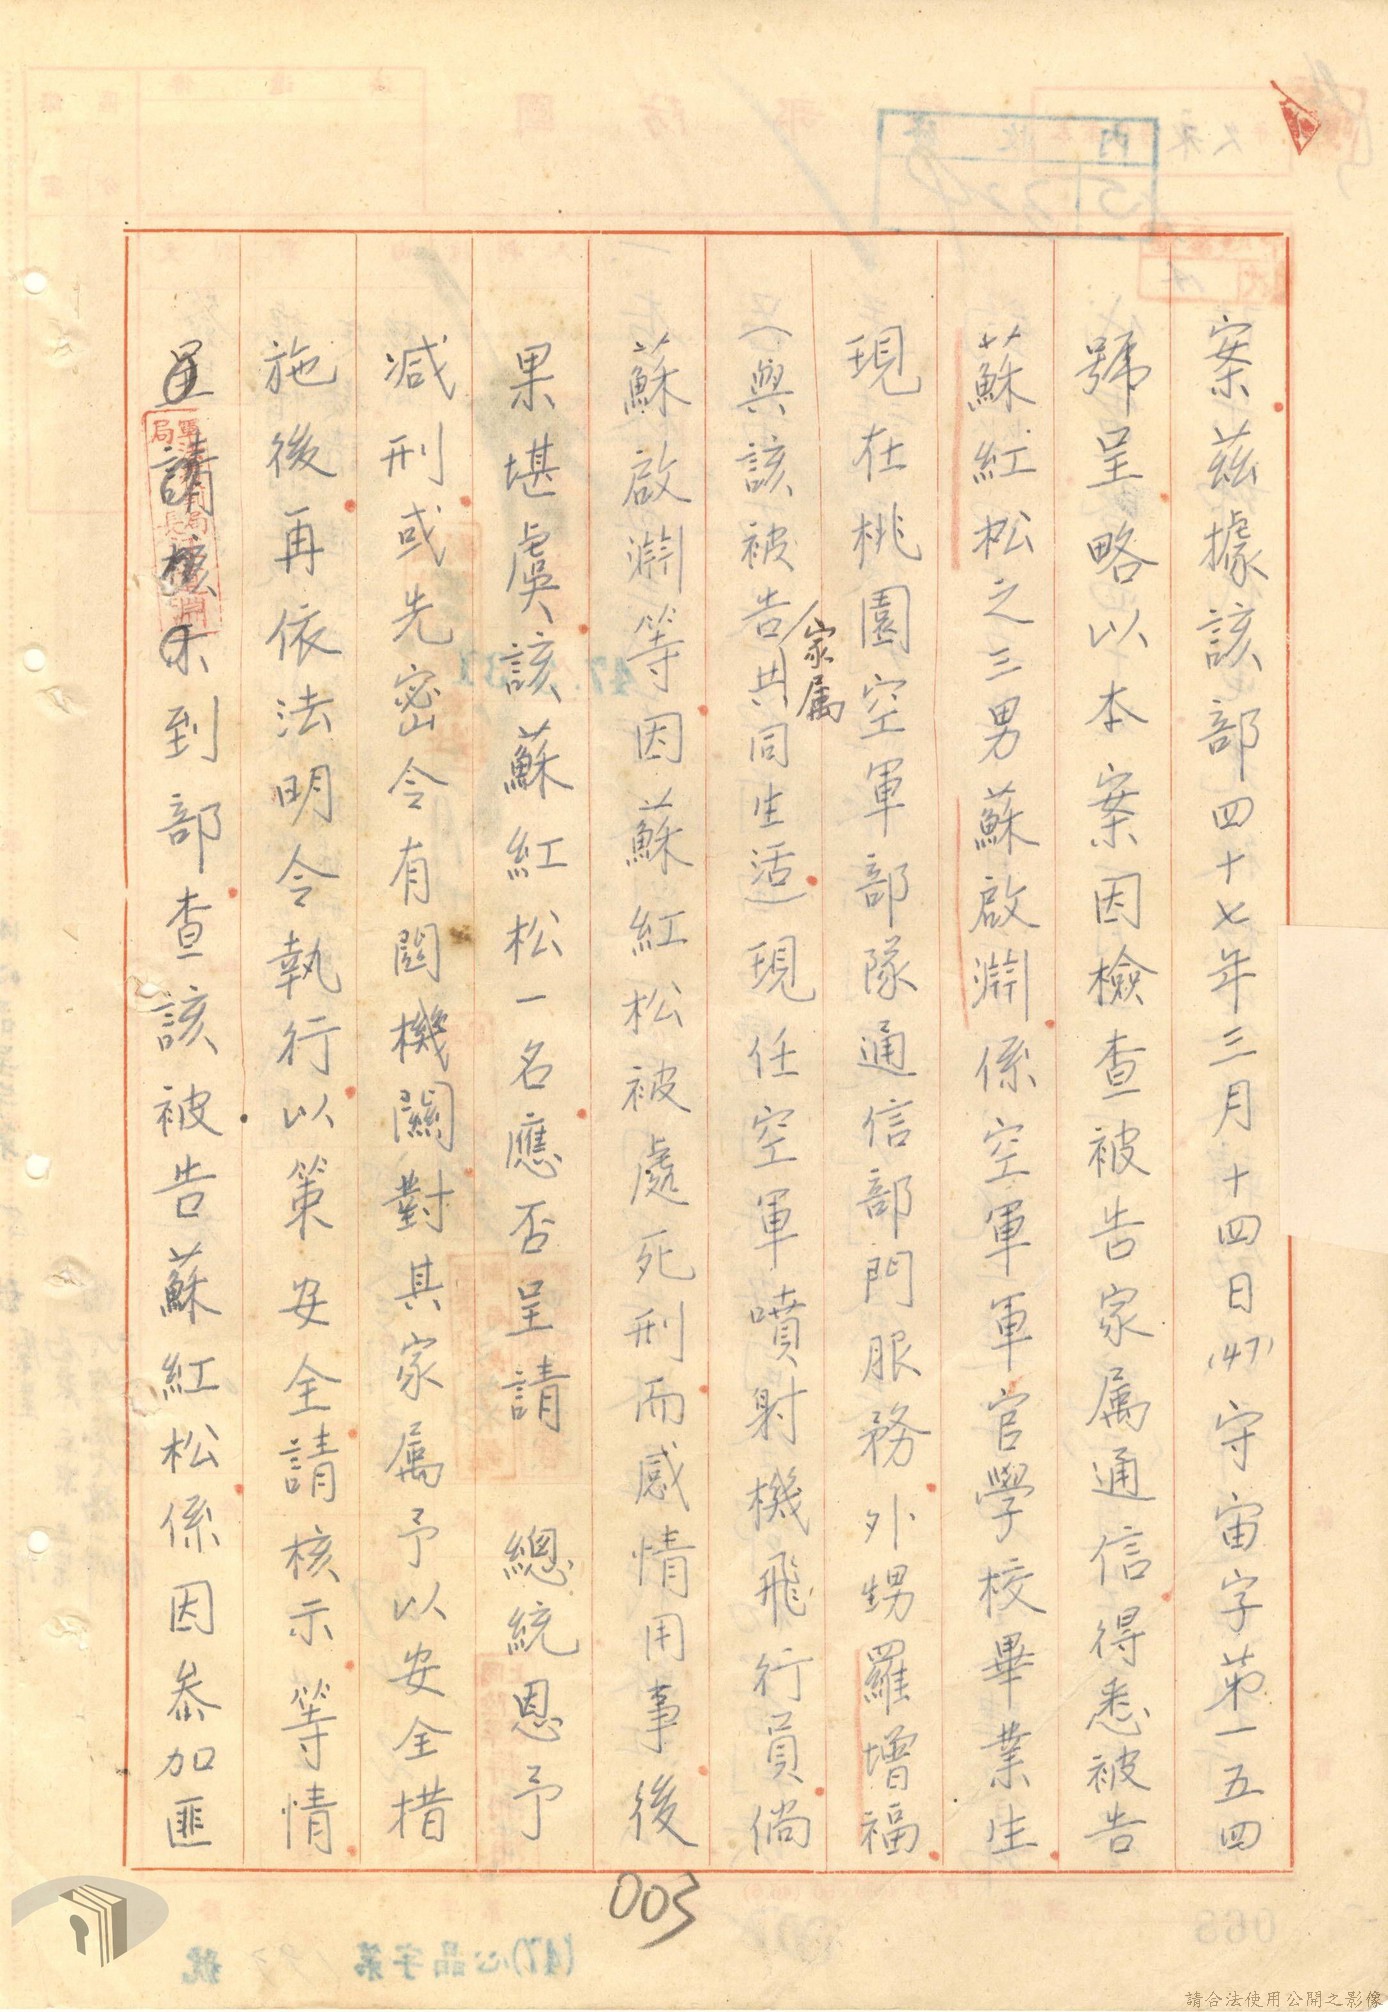 案茲據該部四十七年三月十四日(47)守宙字第一五四
號呈略以本案因檢查被告家属通信得悉被告
蘇紅松之三男蘇啟淵係空軍軍官學校畢業生
現在桃園空軍部隊通信部門服務外甥羅增福
(與該被告家属共同生活)現任空軍噴射機飛行員倘
蘇啟淵等因蘇紅松被處死刑而感情用事後
果堪虞該蘇紅松一名應否呈請　總統恩予
减刑或先密令有関機關對其家属予以安全措
施後再依法明令執行以策安全請核示等情
到部查該被告蘇紅松係因参加匪
003
請合法使用公開之影像